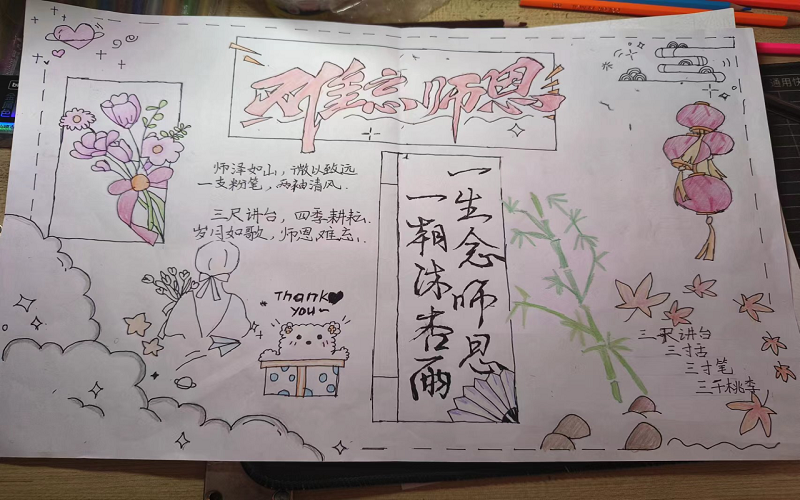 难忘师恩
师泽如山，微以致远
一支粉笔，两袖清风.
三尺讲台，四季耕耘.
岁月如歌，师恩难忘.
Thank
you~
一生念师恩
一朝沐杏雨
三尺讲台
三寸舌
三寸笔
三千桃李
通用快